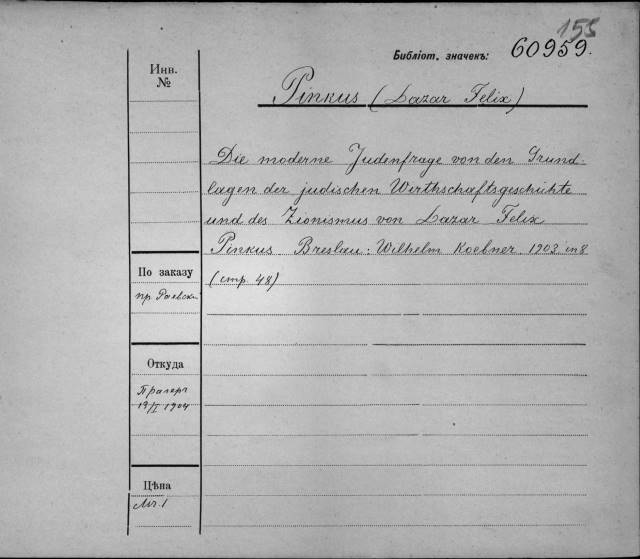 155
Библіот. значекъ: 60959.
Инв.
№
Pinkus (Lazar Felix)
Die moderne Judenfrage von den Grund-
lagen der judischen Wirthschaftsgeschichte
und des Zionismus von Lazar Felix
Pinkus Breslau: Wilhelm Koebner 1903 in 8
(стр. 48)
По заказу
пр. Раевск
Откуда
19/I 1904
Цѣна
Мк. 1